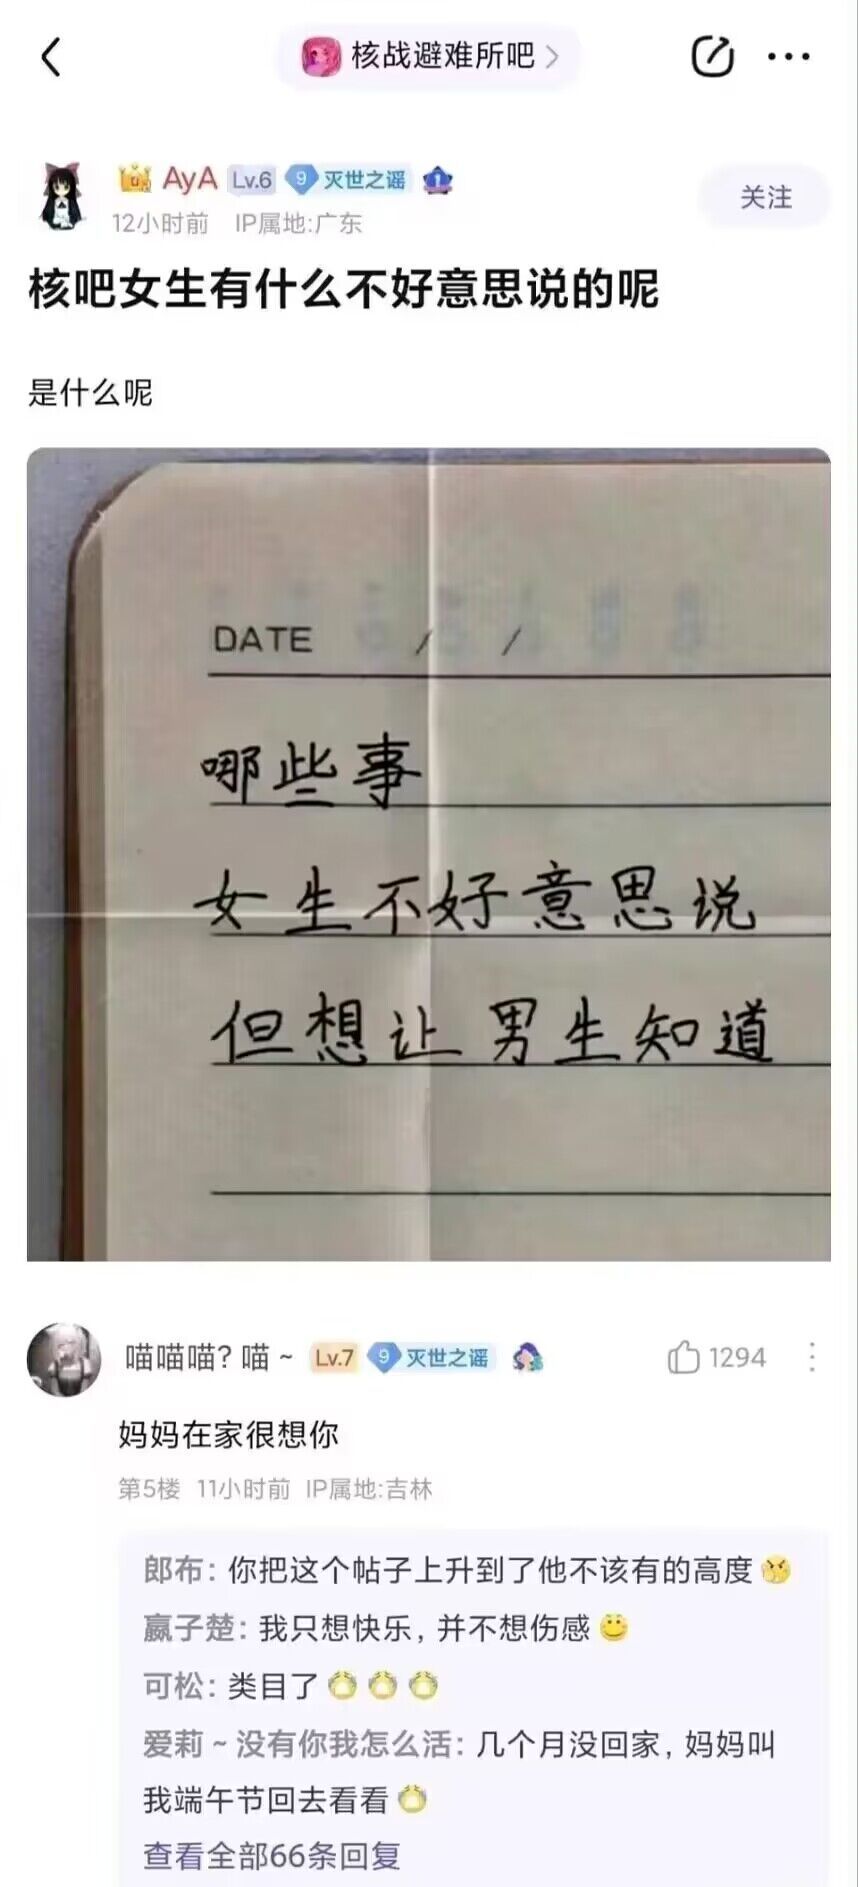 核战避难所吧
AyA Lv.6 9 灭世之谣 1
关注
12小时前 IP属地:广东
核吧女生有什么不好意思说的呢
是什么呢
DATE / /
哪些事
女生不好意思说
但想让男生知道
喵喵喵？喵~ Lv.7 9 灭世之谣
1294
妈妈在家很想你
第5楼 11小时前 IP属地:吉林
郎布：你把这个帖子上升到了他不该有的高度
嬴子楚：我只想快乐，并不想伤感
可松：类目了
爱莉~没有你我怎么活：几个月没回家，妈妈叫
我端午节回去看看
查看全部66条回复